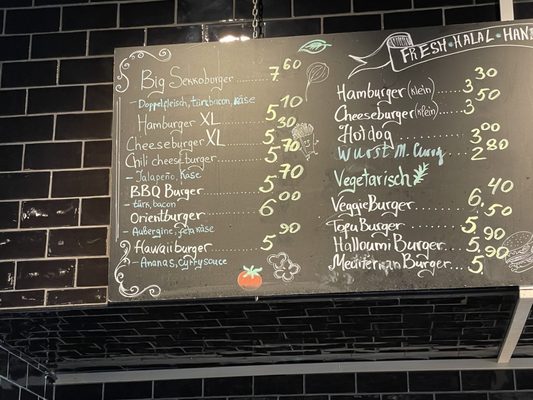 Big Sekkoburger 7.60
- Doppelfleisch, türk.bacon, käse
Hamburger XL 5.10
Cheeseburger XL 5.30
Chili cheeseburger 5.70
- Jalapeño, Käse
BBQ Burger 5.70
- türk, bacon
Orientburger 6.00
Aubergine, feta käse
Hawaii burger 5.90
- Ananas, currysauce
Fresh · Halal ·
Hamburger (klein) 3.30
Cheeseburger (klein) 3.50
Hotdog 3.00
Wurst M. Curry 2.80
Vegetarisch
Veggie Burger 6.40
Tofu Burger 5.50
Halloumi Burger 5.90
Mediterran Burger 5.90